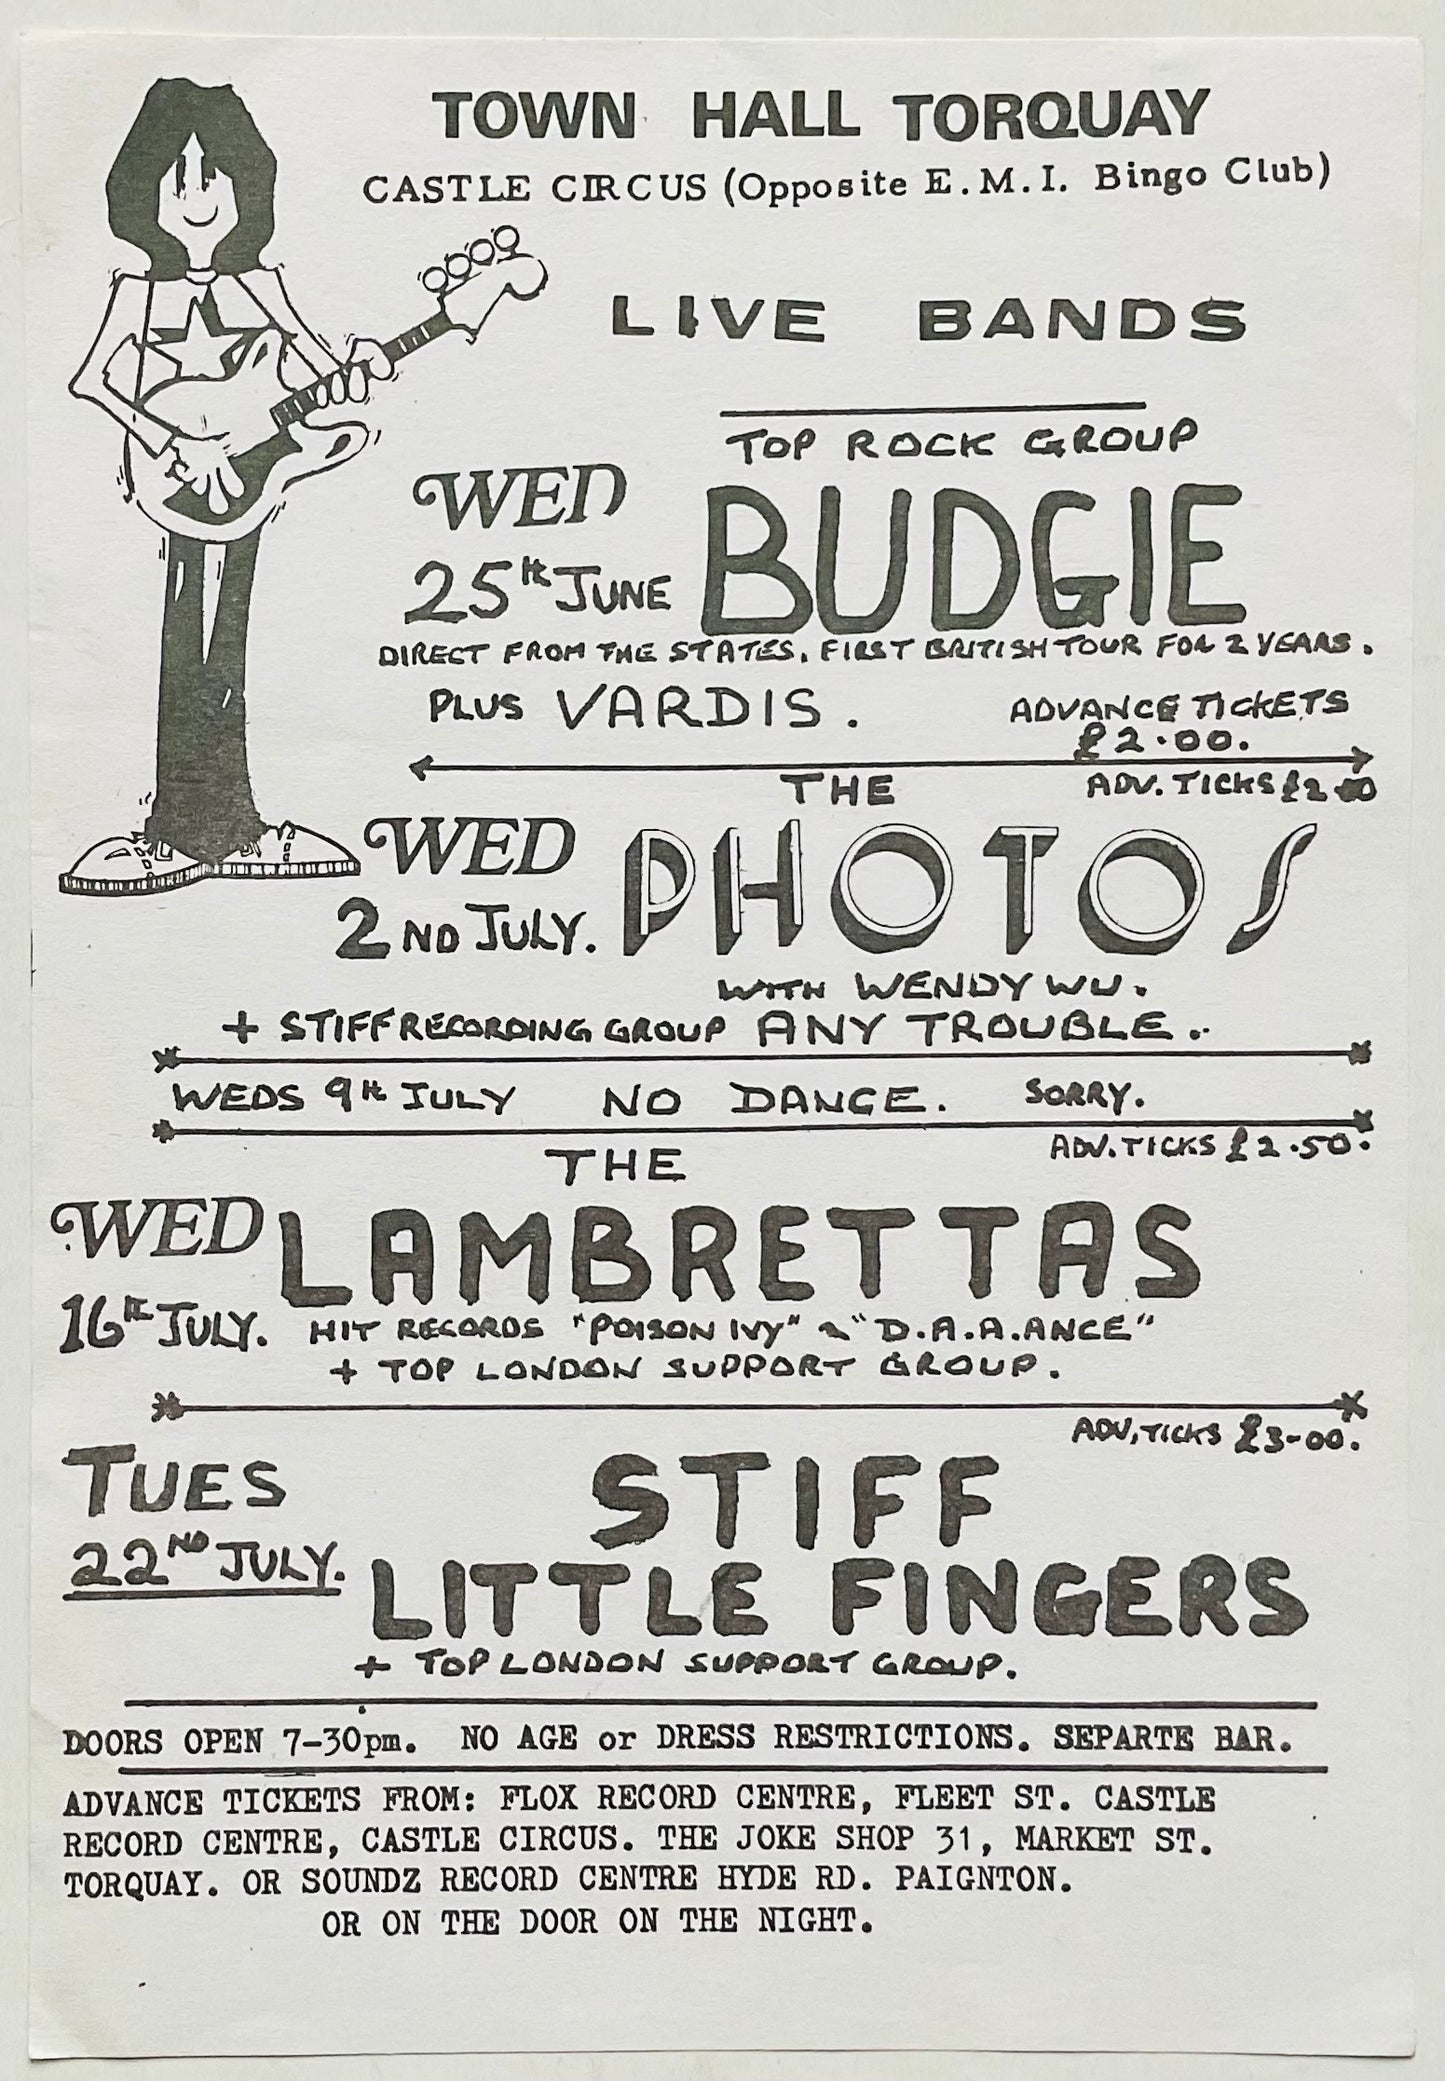 TOWN HALL TORQUAY
CASTLE CIRCUS (Opposite E.M.I. Bingo Club)
LIVE BANDS
TOP ROCK GROUP
WED
25th JUNE
BUDGIE
DIRECT FROM THE STATES. FIRST BRITISH TOUR FOR 2 YEARS.
PLUS VARDIS.
ADVANCE TICKETS
£2.00.
THE
ADV. TICKS £2.00
WED
2ND JULY.
PHOTOS
WITH WENDY WU.
+ STIFF RECORDING GROUP ANY TROUBLE.
WEDS 9th JULY NO DANCE. SORRY.
THE
ADV. TICKS £2.50.
WED
16th JULY.
LAMBRETTAS
HIT RECORDS "POISON IVY" & "D.A.A.ANCE"
+ TOP LONDON SUPPORT GROUP.
ADV, TICKS £3-00.
TUES
22ND JULY.
STIFF
LITTLE FINGERS
+ TOP LONDON SUPPORT GROUP.
DOORS OPEN 7-30pm. NO AGE or DRESS RESTRICTIONS. SEPARTE BAR.
ADVANCE TICKETS FROM: FLOX RECORD CENTRE, FLEET ST. CASTLE
RECORD CENTRE, CASTLE CIRCUS. THE JOKE SHOP 31, MARKET ST.
TORQUAY. OR SOUNDZ RECORD CENTRE HYDE RD. PAIGNTON.
OR ON THE DOOR ON THE NIGHT.